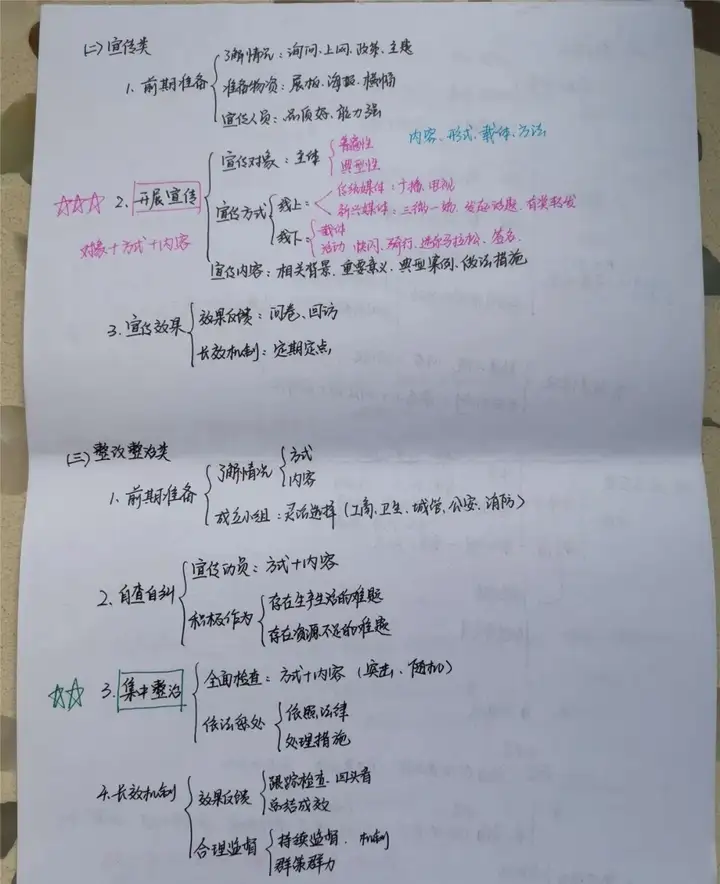 (二)宣传类
了解情况：询问、上网、政策、主题
1. 前期准备
准备物资：展板、海报、横幅
宣传人员：品质好、能力强
内容、形式、载体、方法
宣传对象：主体
普遍性
典型性
☆☆☆ 2. 开展宣传
宣传方式
线上：
传统媒体：广播、电视
新兴媒体：三微一端、发起话题、有奖转发
线下：
载体
活动 快闪、骑行、迷你马拉松、签名、
对象+方式+内容
宣传内容：相关背景、重要意义、典型案例、做法措施
3. 宣传效果
效果反馈：问卷、回访
长效机制：定期定点
(三)整改整治类
1. 前期准备
了解情况
方式
内容
成立小组：灵活选择（工商、卫生、城管、公安、消防）
2. 自查自纠
宣传动员：方式+内容
积极作为
存在生产生活的难题
存在资源不足的难题
☆☆ 3. 集中整治
全面检查：方式+内容（突击、随机）
依法惩处
依照法律
处理措施
4. 长效机制
效果反馈
跟踪检查、回头看
总结成效
合理监督
持续监督、机制
群策群力